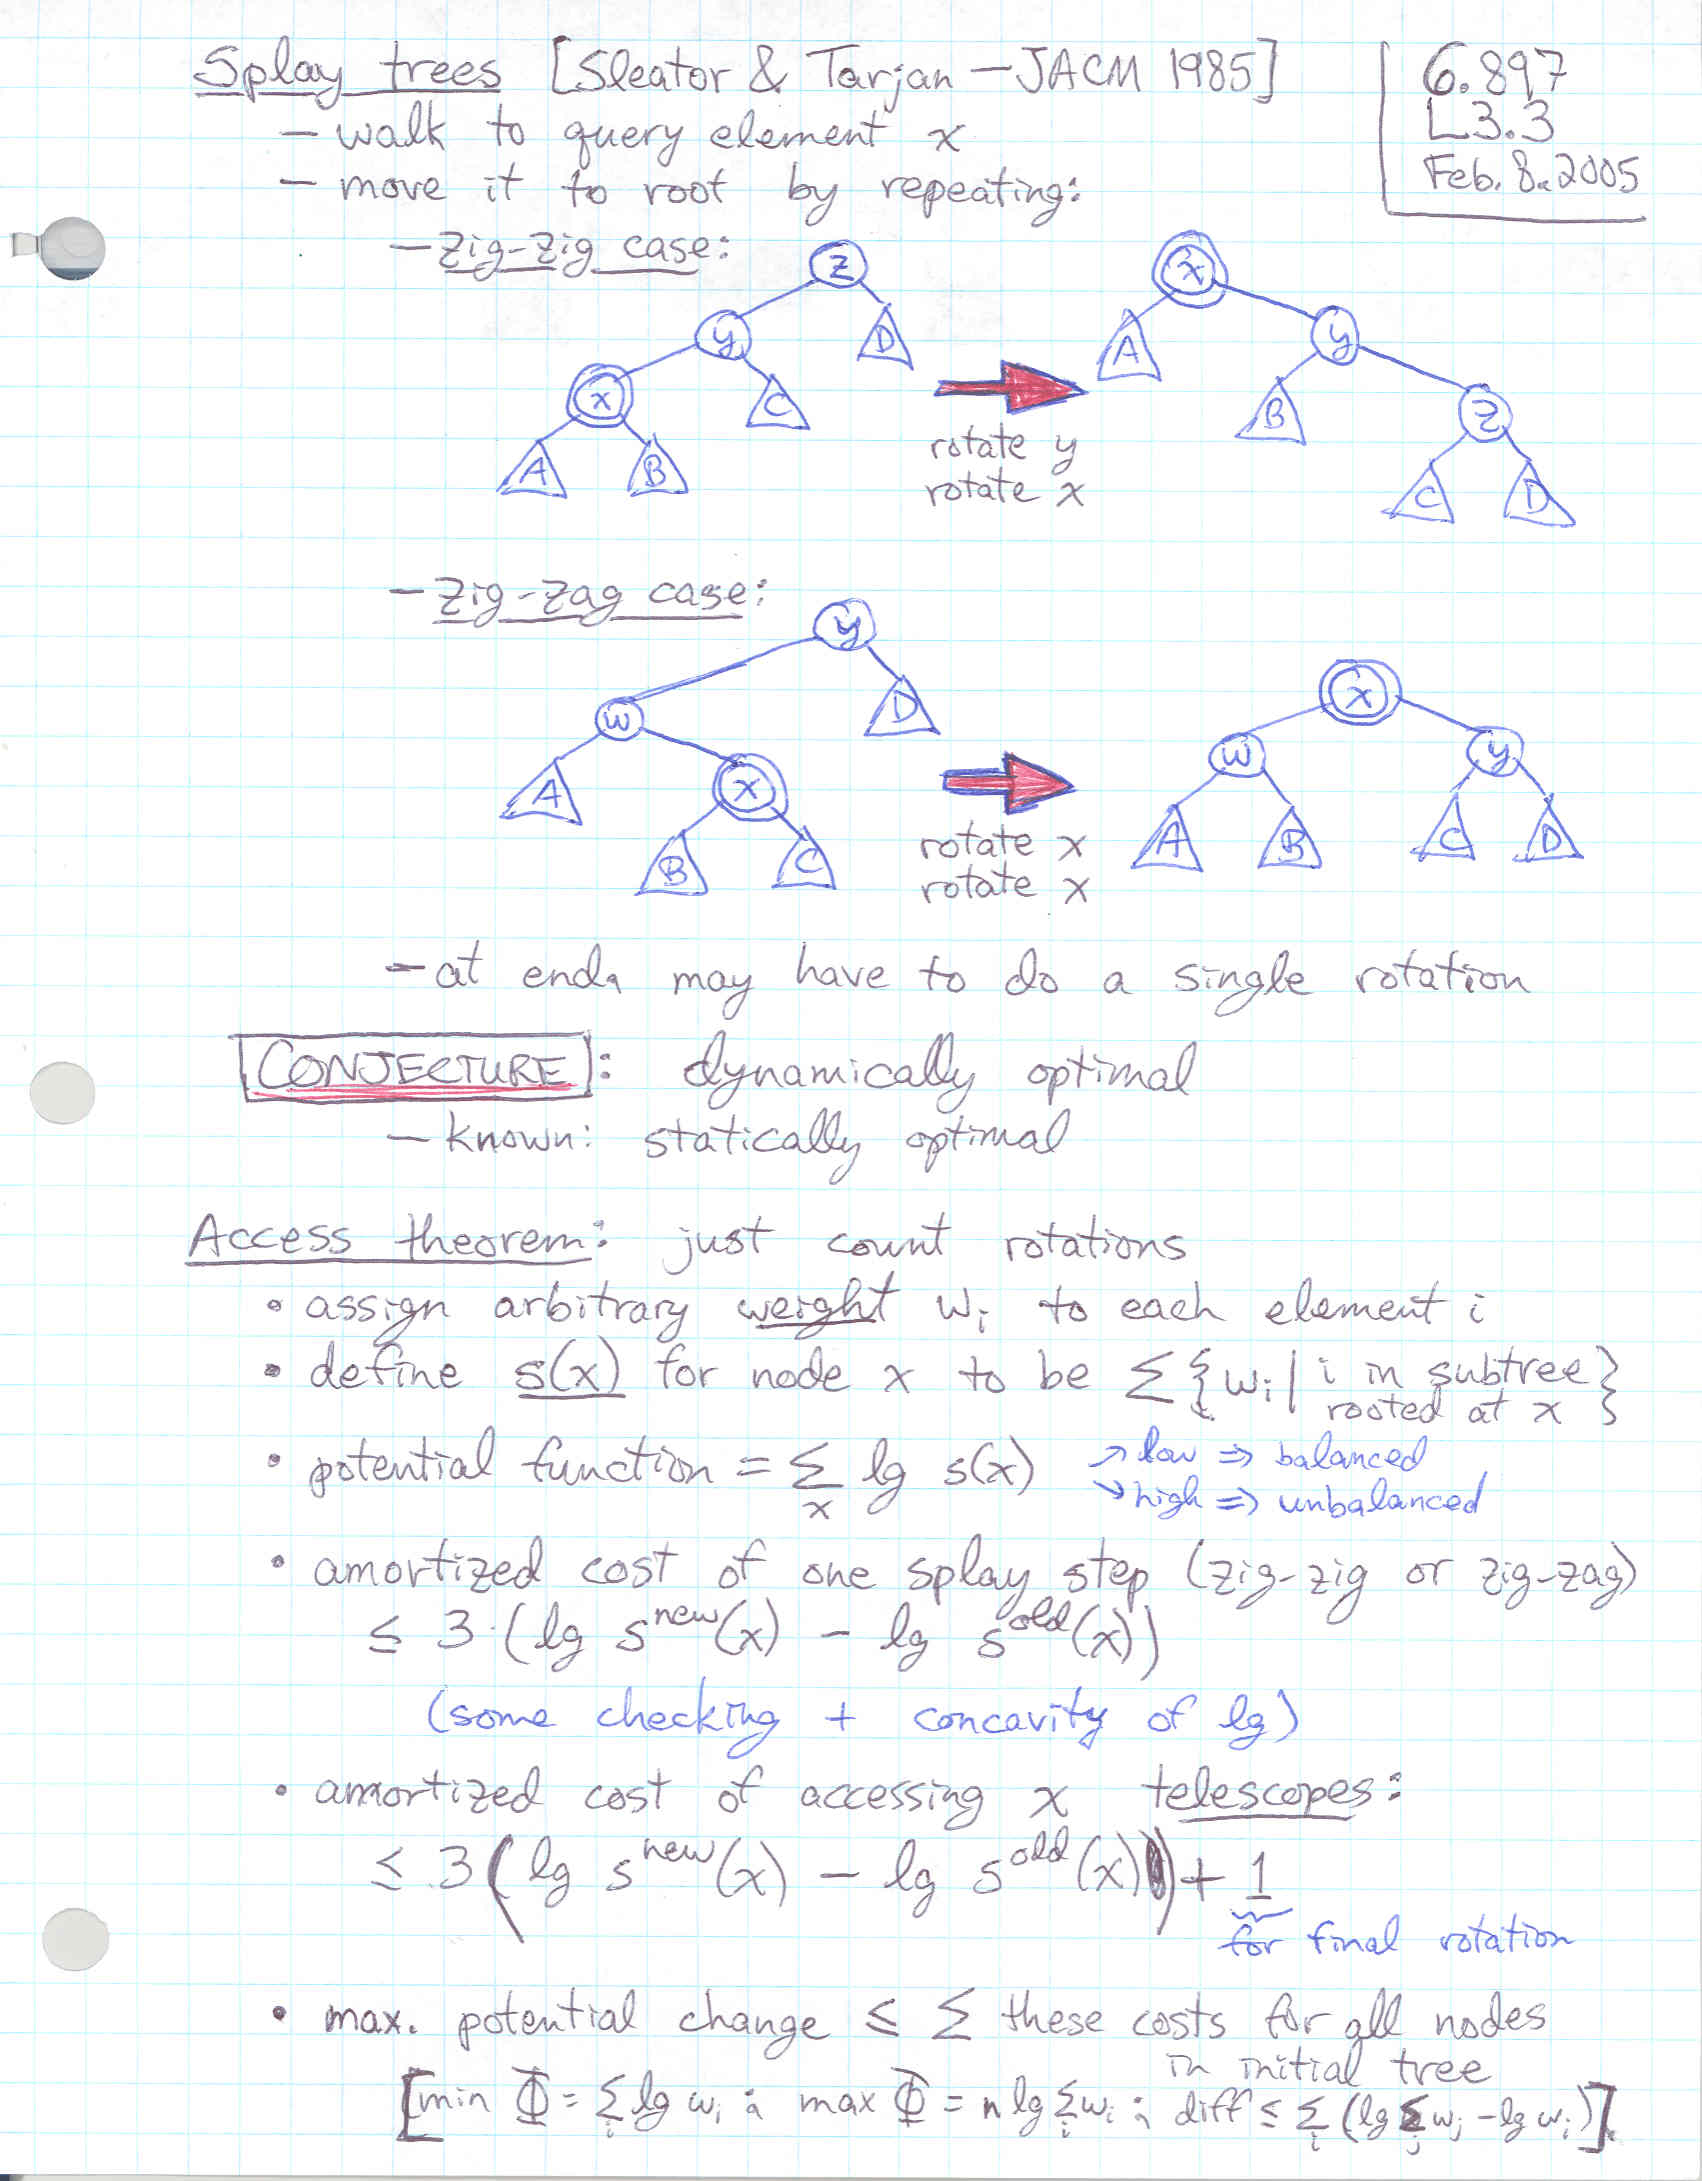 Splay trees [Sleator & Tarjan – JACM 1985]
6.897
L3.3
Feb. 8, 2005
– walk to query element x
– move it to root by repeating:
– zig-zig case:
z
y
D
x
C
A B
rotate y
rotate x
x
A
y
B
z
C D
– zig-zag case:
y
w
D
A
x
B C
rotate x
rotate x
x
w y
A B C D
– at end, may have to do a single rotation
CONJECTURE: dynamically optimal
– known: statically optimal
Access theorem: just count rotations
• assign arbitrary weight wᵢ to each element i
• define s(x) for node x to be Σ{wᵢ | i in subtree
rooted at x}
• potential function = Σₓ lg s(x)
↗ low ⇒ balanced
↘ high ⇒ unbalanced
• amortized cost of one splay step (zig-zig or zig-zag)
≤ 3·(lg s^new(x) – lg s^old(x))
(some checking + concavity of lg)
• amortized cost of accessing x telescopes:
≤ 3(lg s^new(x) – lg s^old(x)) + 1
for final rotation
• max. potential change ≤ Σ these costs for all nodes
in initial tree
[min Φ = Σᵢ lg wᵢ; max Φ = n lg Σᵢ wᵢ; diff ≤ Σᵢ (lg Σⱼ wⱼ – lg wᵢ)].